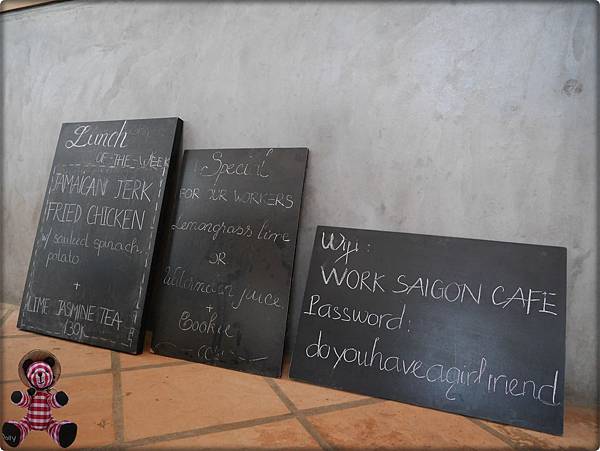 Lunch
OF-THE-WEEK
JAMAICAN JERK
FRIED CHICKEN
w/ sauteed spinach,
potato
+
LIME JASMINE TEA
139K
Special
FOR OUR WORKERS
Lemongrass lime
OR
Watermelon juice
+
Cookie
Wifi:
WORK SAIGON CAFE
Password:
doyouhaveagirlfriend